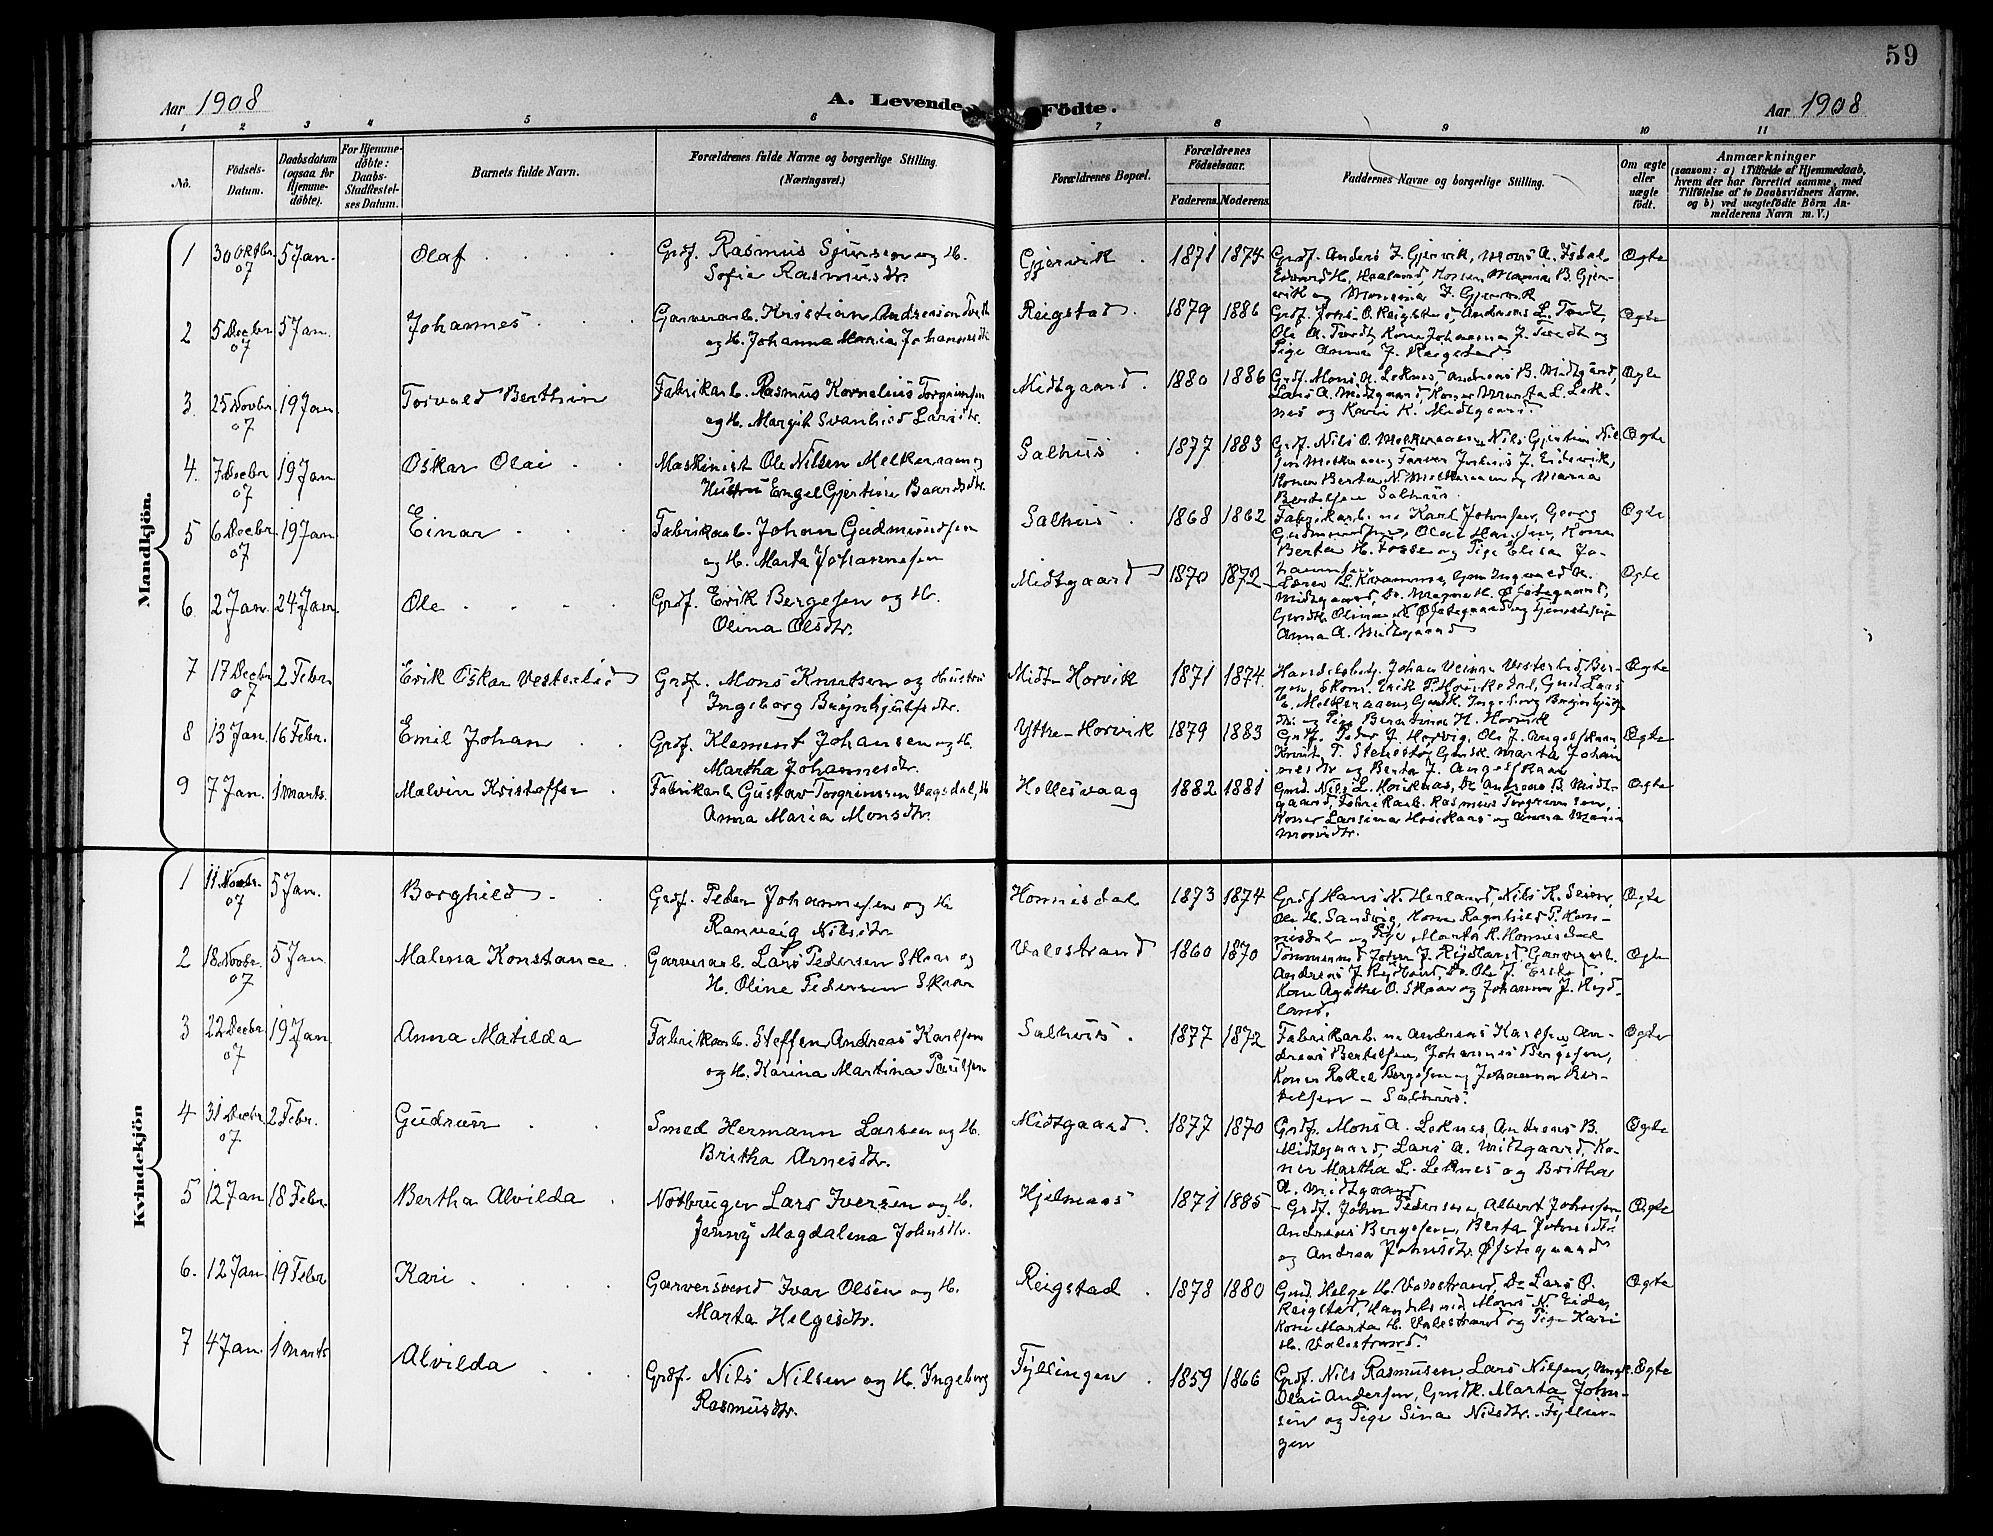 59
Aar 1908
A. Levende Födte.
Aar 1908
1 2 3 4 5 6 7 8 9 10 11
No.
Födsels-Datum.
Daabsdatum (ogsaa for Hjemmedöbte).
For Hjemmedöbte: Daabs-Stadfæstelses Datum.
Barnets fulde Navn.
Forældrenes fulde Navne og borgerlige Stilling. (Næringsvei.)
Forældrenes Bopæl.
Forældrenes Födselsaar.
Faderens. Moderens.
Faddernes Navne og borgerlige Stilling.
Om ægte eller uægte födt.
Anmærkninger
(saasom: a) i Tilfælde af Hjemmedaab, hvem der har forrettet samme, med Tilföielse af to Daabsvidners Navne. og b) ved uægtefödte Börn Anmelderens Navn m. V.)
Mandkjön.
1 30 Oktbr. 07 5 Jan. Olaf Grdf. Rasmus Sjursen og H. Sofie Rasmusdtr. Gjervik 1871 1874 Grdf. Anders J. Gjervik, Mons A. Isdal Ægte
2 5 Decbr 07 5 Jan. Johannes Garverarb. Kristian Andersson og H. Johanna Maria Johannesdtr Reigstad 1879 1886 Pige Anna J. Reigstad Ægte
3. 25 Novbr 07 19 Jan. Torvald Berthin Fabrikarb. Rasmus Kornelius Torgrimsen og H. Margit Svanhild Larsdtr. Midtgaard. 1880 1886 Grdf. Mons A. Leknes, Andreas B. Midtgaard, Lars A. Midtgaard, Koner L. Leknes og Kari K. Midtgaard. Ægte
4. 7 Decbr 07 19 Jan Oskar Olai Maskinist Ole Nilsen Melkeraaen og Hustru Engel Gjertine Baardsdtr. Salhus 1877 1883 Grdf. Nils O. Melkeraaen, Nils Gjertin Nilsen Melkeraaen, J. Eidsvik, Koner Berta N. Melkeraaen og Marna Bertelsen Salhus. Ægte
5 6 Decbr 07 19 Jan Einar Fabrikarb. Johan Gudmundsen og H. Marta Johannesen Salhus 1868 1862 Fabrikarb.ne Karl Johnsen, Georg Gudmundsen, Olai Hansen, Kone Berta H. Fosse og Pige Elisa Johannesen Ægte
6 2 Jan. 24 Jan. Ole Grdf. Erik Bergesen og H. Olina Olsdtr. Midtgaard 1870 1872 Anna A. Midtgaard Ægte
7 17 Decbr 07 2 Febr Erik Oskar Vesterlid Grdf. Mons Knutsen og Hustru Ingeborg Brynhjulfsdtr. Midt-Horvik 1871 1874 Johan Vesterlid, Bergen Ægte
8 13 Jan. 16 Febr. Emil Johan Grdf. Klement Johansen og H. Martha Johannesdtr. Yttre-Horvik 1879 1883 Grdf. Peder J. Horvig, Ole J. Marta Johannesdtr og Berta J. Ægte
9 7 Jan. 1 Marts. Malvin Kristoffer Fabrikarb Gustav Torgrimsen Vagsdal, H Anna Maria Monsdtr. Hellesvaag 1882 1881 Gmd. Nils L. Andreas B. Midtgaard, Fabrikarb. Rasmus Torgrimsen, Koner Larsina og Anna Maria Monsdtr. Ægte
Kvindekjön
1 11 Novbr. 07 5 Jan. Borghild Grdf. Peder Johannesen og H. Ranveig Nilsdtr Honnisdal 1873 1874 Grdf Hans N. Herland, Nils K. Seim, Ole H. Sandvig, Kone Ragnhild P. Honnisdal og Pige Marta K. Honnisdal Ægte
2 18 Novbr. 07 5 Jan Malena Konstance Garverarb. Lars Pedersen Skaar og H. Oline Pedersen Skaar Valestrand 1860 1870 Tömmermd John J. Hejdland, Garverarb. Andreas J. Hejdland, Kone Agathe O. Skaar og Johanna J. Hejdland. Ægte
3 22 Decbr. 07 19 Jan Anna Matilda Fabrikarb. Steffen Andreas Karlsen og H. Karina Martina Paulsen Salhus. 1877 1872 Fabrikarb.ne Andreas Karlsen, Andreas Bertelsen, Johannes Bergesen, Koner Rakel Bergesen og Johanna Bertelsen – Salhus. Ægte
4 31 Decbr 07 2 Febr. Gudrun Smed Hermann Larsen og H. Britha Arnesdtr. Midtgaard. 1877 1870 Grdf. Mons A. Leknes, Andreas B. Midtgaard, Lars A. Midtgaard, Koner Martha L. Leknes og Britha A. Midtgaard Ægte
5 12 Jan 18 Febr. Bertha Alvilda Notbruger Lars Iversen og H. Jenny Magdalena Johnsdtr. Hjelmaas 1871 1885 Grdf. John Pedersen, Albert Johnsen, Andreas Bergesen, Berta Johnsdtr og Andrea Johnsdtr. Østegaard Ægte
6. 12 Jan. 19 Febr Kari Garversvend Ivar Olsen og H. Marta Helgesdtr. Reigstad 1878 1880 Gmd. Helge H. Valestrand, Do Lars O. Reigstad, Mons N. Eide, Kone Marta H. Valestrand og Pige Kari H. Valestrand. Ægte
7 4 Jan. 1 Marts Alvilda Grdf. Nils Nilsen og H. Ingeborg Rasmusdtr. Fyllingen 1859 1866 Grdf. Nils Rasmusen, Lars Nilsen, Olai Andersen, Gmdk. Marta Johnsen og Pige Sina Nilsdtr. Fyllingen Ægte